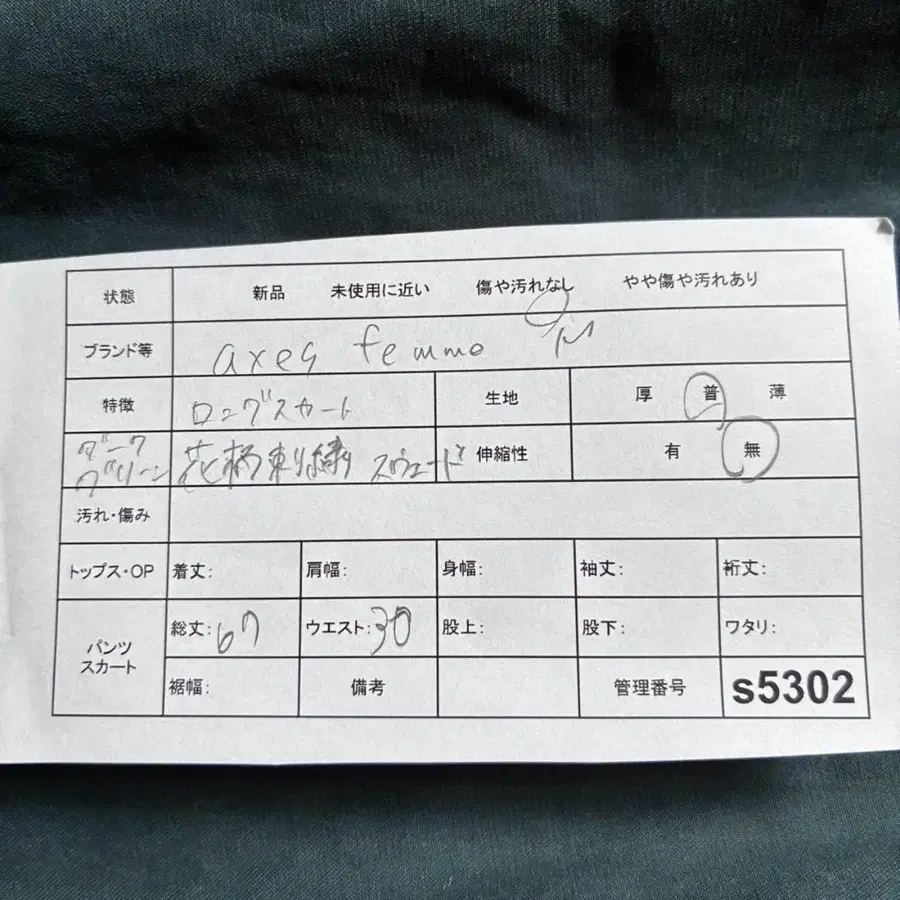 状態 新品 未使用に近い 傷や汚れなし やや傷や汚れあり
ブランド等 axes femme M
特徴 ロングスカート 生地 厚 普 薄
ダークグリーン 花柄刺繍 スウェード 伸縮性 有 無
汚れ・傷み
トップス・OP 着丈: 肩幅: 身幅: 袖丈: 裄丈:
パンツ スカート 総丈:67 ウエスト:30 股上: 股下: ワタリ:
裾幅: 備考 管理番号 s5302